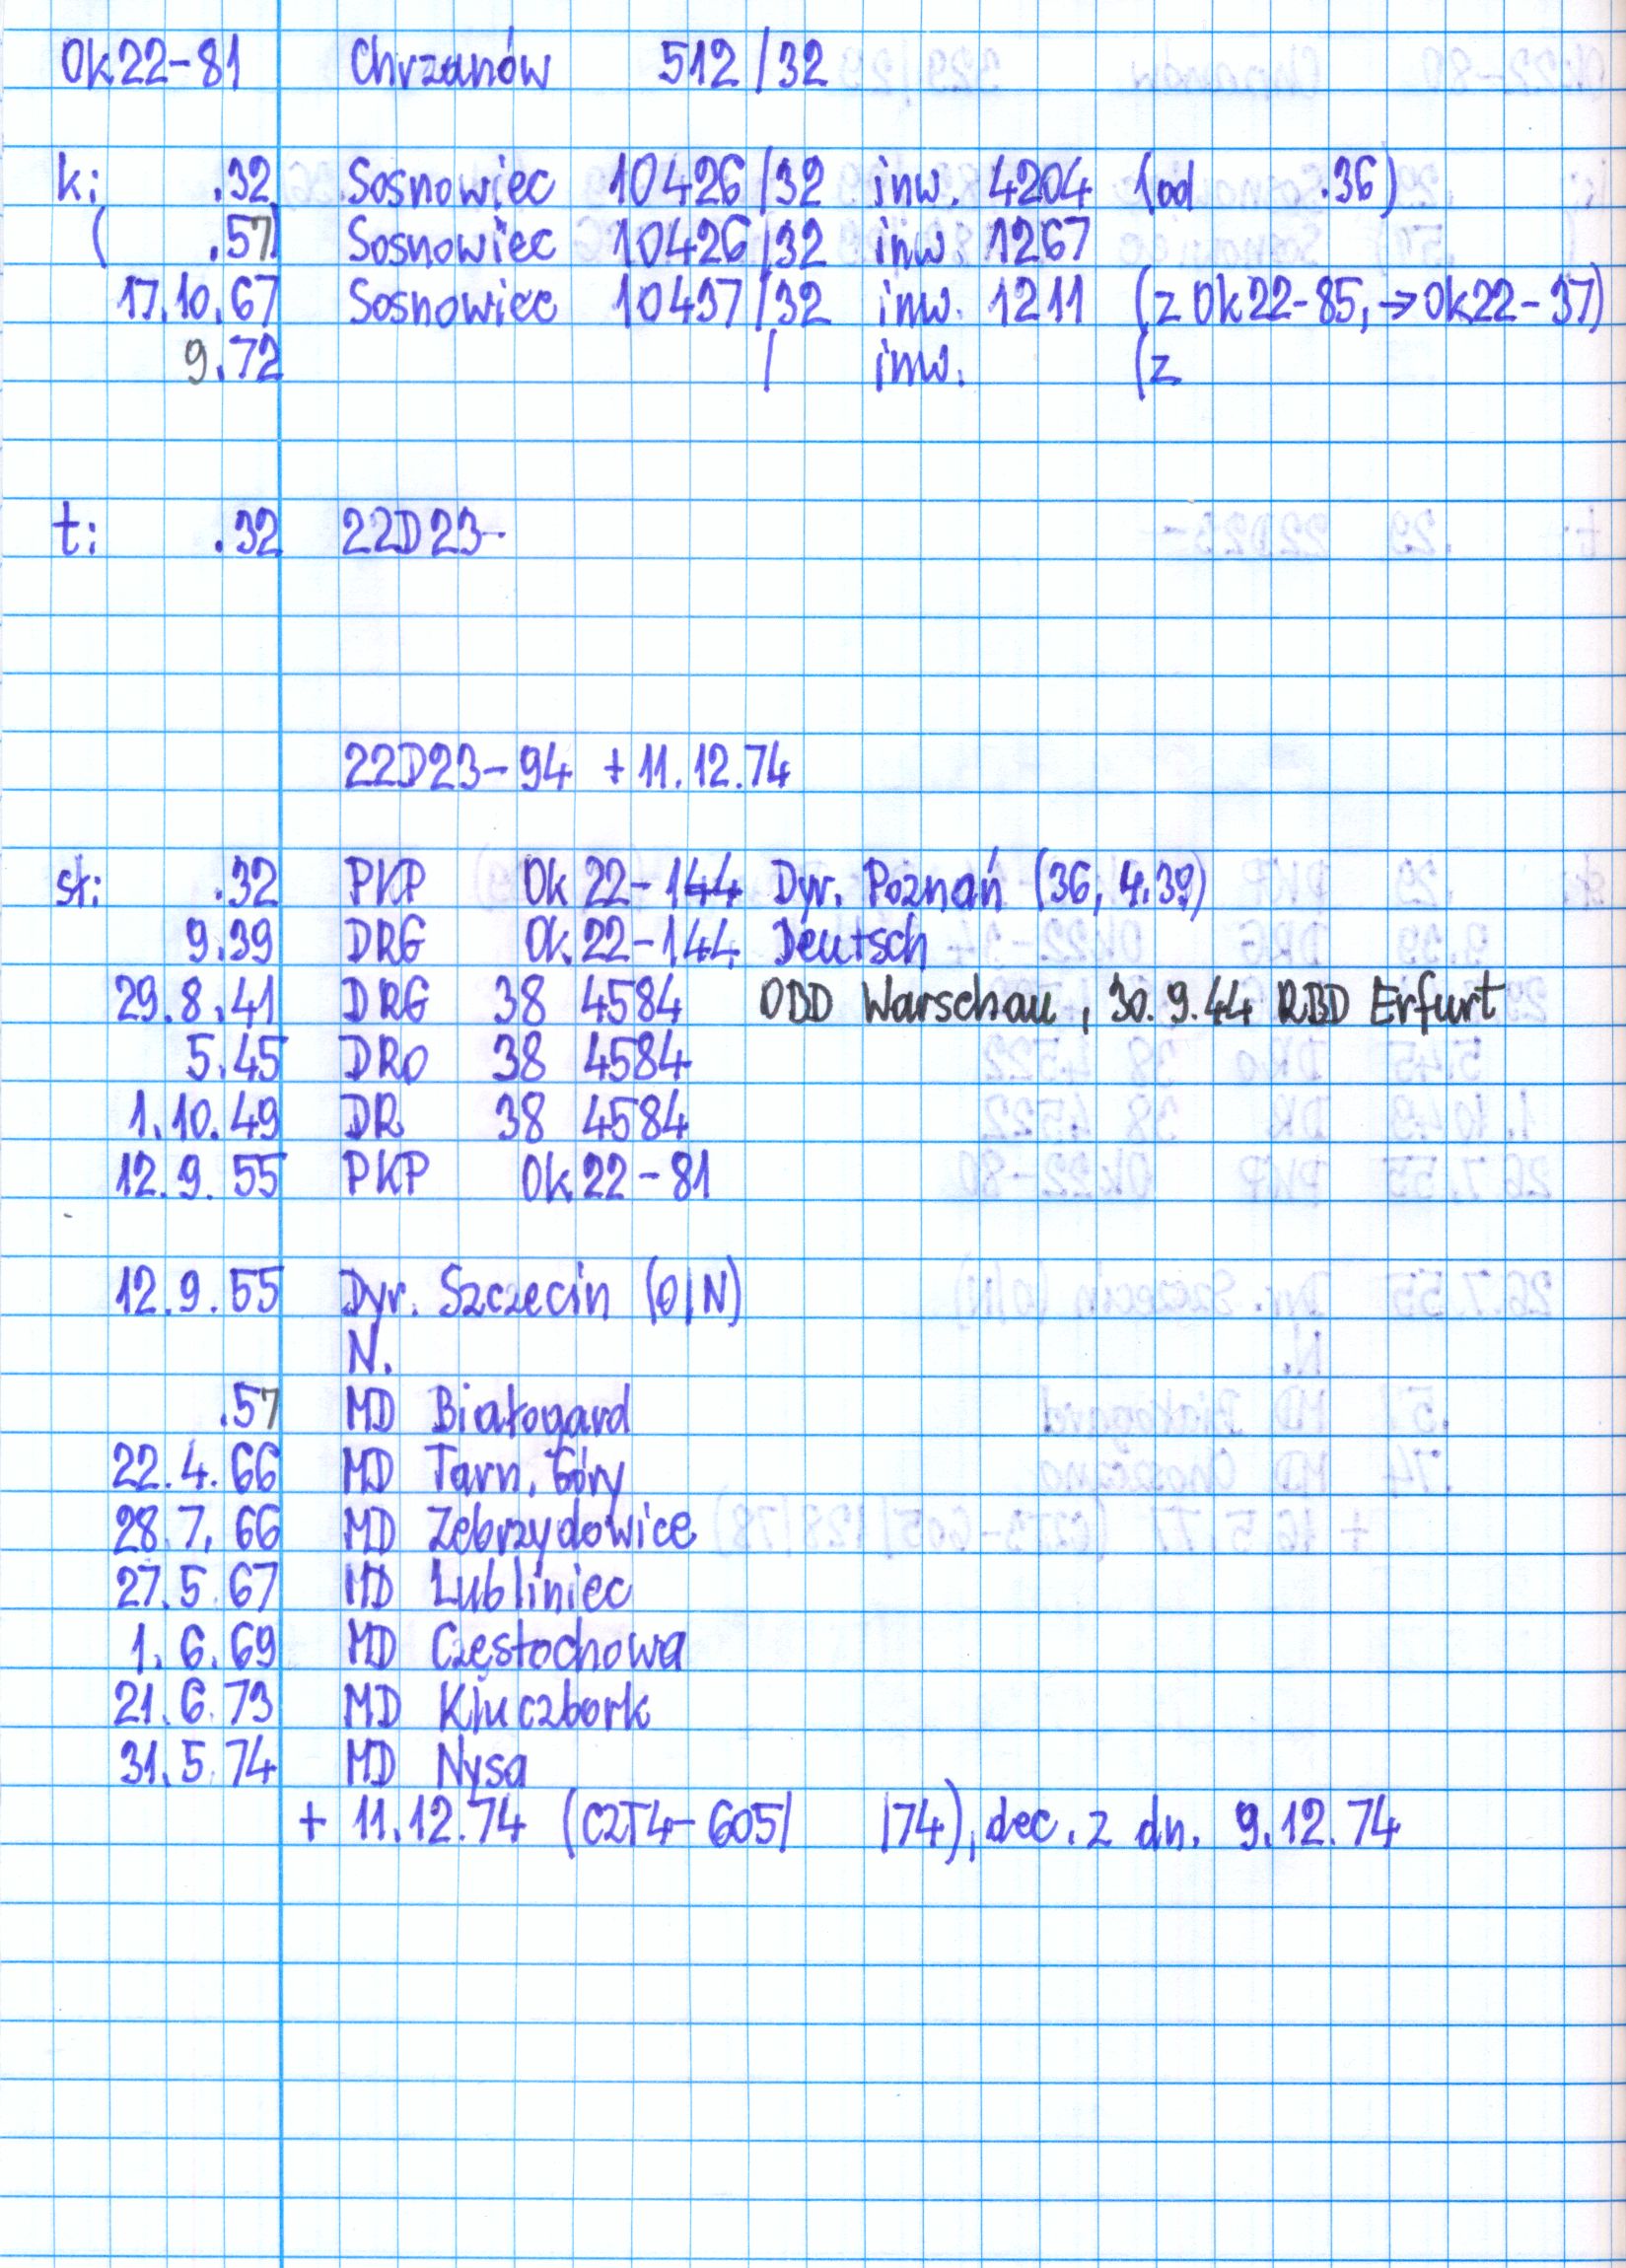 Ok22-81 Chrzanów 512/32
k: .32 Sosnowiec 10426/32 inw. 4204 (od .36)
( .57) Sosnowiec 10426/32 inw. 1267
17.10.67 Sosnowiec 10437/32 inw. 1211 (z Ok22-85, →Ok22-37)
9.72 / inw. (z
t: .32 22D23-
22D23-94 + 11.12.74
st: .32 PKP Ok22-144 Dyr. Poznań (36, 4.39)
9.39 DRG Ok22-144 Deutsch
29.8.41 DRG 38 4584 OBD Warschau, 30.9.44 RBD Erfurt
5.45 DRo 38 4584
1.10.49 DR 38 4584
12.9.55 PKP Ok22-81
12.9.55 Dyr. Szczecin (O/N)
N.
.57 MD Białogard
22.4.66 MD Tarn. Góry
28.7.66 MD Zebrzydowice
27.5.67 MD Lubliniec
1.6.69 MD Częstochowa
21.6.73 MD Kluczbork
31.5.74 MD Nysa
+ 11.12.74 (C2T4-605/ /74), dec. z dn. 9.12.74